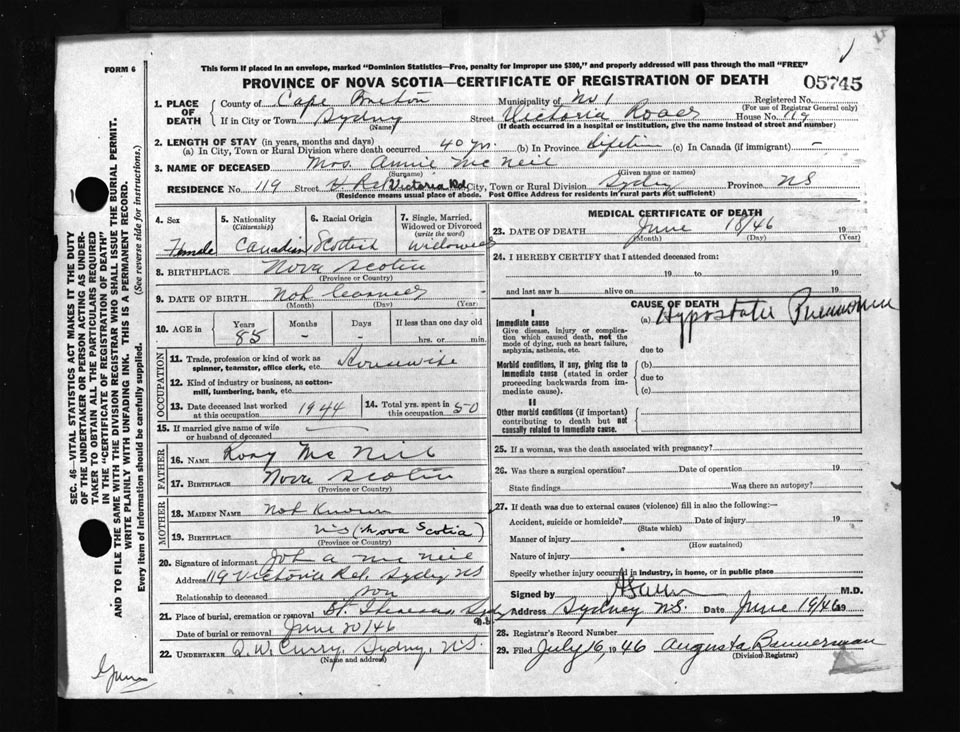 FORM 6
This form if placed in an envelope, marked "Dominion Statistics—Free, penalty for improper use $300," and properly addressed will pass through the mail "FREE"
PROVINCE OF NOVA SCOTIA—CERTIFICATE OF REGISTRATION OF DEATH
05745
1. PLACE OF DEATH
County of Cape Breton Municipality of No 1 Registered No.
(For use of Registrar General only)
If in City or Town Sydney Street Victoria Road House No. 119
(Name) (If death occurred in a hospital or institution, give the name instead of street and number)
2. LENGTH OF STAY (in years, months and days)
(a) In City, Town or Rural Division where death occurred 40 yrs. (b) In Province Lifetime (c) In Canada (if immigrant) —
3. NAME OF DECEASED Mrs. Annie McNeil
(Surname) (Given name or names)
RESIDENCE No. 119 Street Victoria Rd City, Town or Rural Division Sydney Province NS
(Residence means usual place of abode. Post Office Address for residents in rural parts not sufficient)
4. Sex Female
5. Nationality (Citizenship) Canadian
6. Racial Origin Scottish
7. Single, Married, Widowed or Divorced (write the word) Widowed
8. BIRTHPLACE Nova Scotia
(Province or Country)
9. DATE OF BIRTH Not learned
(Month) (Day) (Year)
10. AGE in Years 85 Months - Days - If less than one day old hrs. or min.
OCCUPATION
11. Trade, profession or kind of work as spinner, teamster, office clerk, etc. Housewife
12. Kind of industry or business, as cotton-mill, lumbering, bank, etc.
13. Date deceased last worked at this occupation 1944
14. Total yrs. spent in this occupation 50
15. If married give name of wife or husband of deceased —
FATHER
16. NAME Rory McNeil
17. BIRTHPLACE Nova Scotia
(Province or Country)
MOTHER
18. MAIDEN NAME Not Known
19. BIRTHPLACE NS (Nova Scotia)
(Province or Country)
20. Signature of informant A McNeil
Address 119 Victoria Rd, Sydney NS
Relationship to deceased son
21. Place of burial, cremation or removal St. Sydney
Date of burial or removal June 20/46
22. UNDERTAKER W. Curry, Sydney, NS.
(Name and address)
MEDICAL CERTIFICATE OF DEATH
23. DATE OF DEATH June 18/46 19
(Month) (Day) (Year)
24. I HEREBY CERTIFY that I attended deceased from:
19 to 19
and last saw h alive on 19
CAUSE OF DEATH
I
Immediate cause
Give disease, injury or complication which caused death, not the mode of dying, such as heart failure, asphyxia, asthenia, etc.
(a) Hypostatic Pneumonia
due to
Morbid conditions, if any, giving rise to immediate cause (stated in order proceeding backwards from immediate cause).
(b)
due to
(c)
II
Other morbid conditions (if important) contributing to death but not causally related to immediate cause.
25. If a woman, was the death associated with pregnancy?
26. Was there a surgical operation? Date of operation 19
State findings Was there an autopsy?
27. If death was due to external causes (violence) fill in also the following:—
Accident, suicide or homicide? Date of injury 19
(State which)
Manner of injury
(How sustained)
Nature of injury
Specify whether injury occurred in industry, in home, or in public place
Signed by M.D.
Address Sydney N.S. Date June 19/46 19
28. Registrar's Record Number
29. Filed July 16, 1946 Augusta Bannerman
(Division Registrar)
SEC. 46—VITAL STATISTICS ACT MAKES IT THE DUTY
OF THE UNDERTAKER OR PERSON ACTING AS UNDER-
TAKER TO OBTAIN ALL THE PARTICULARS REQUIRED
IN THE "CERTIFICATE OF REGISTRATION OF DEATH"
AND TO FILE THE SAME WITH THE DIVISION REGISTRAR WHO SHALL ISSUE THE BURIAL PERMIT.
WRITE PLAINLY WITH UNFADING INK. THIS IS A PERMANENT RECORD.
Every item of information should be carefully supplied. (See reverse side for instructions.)